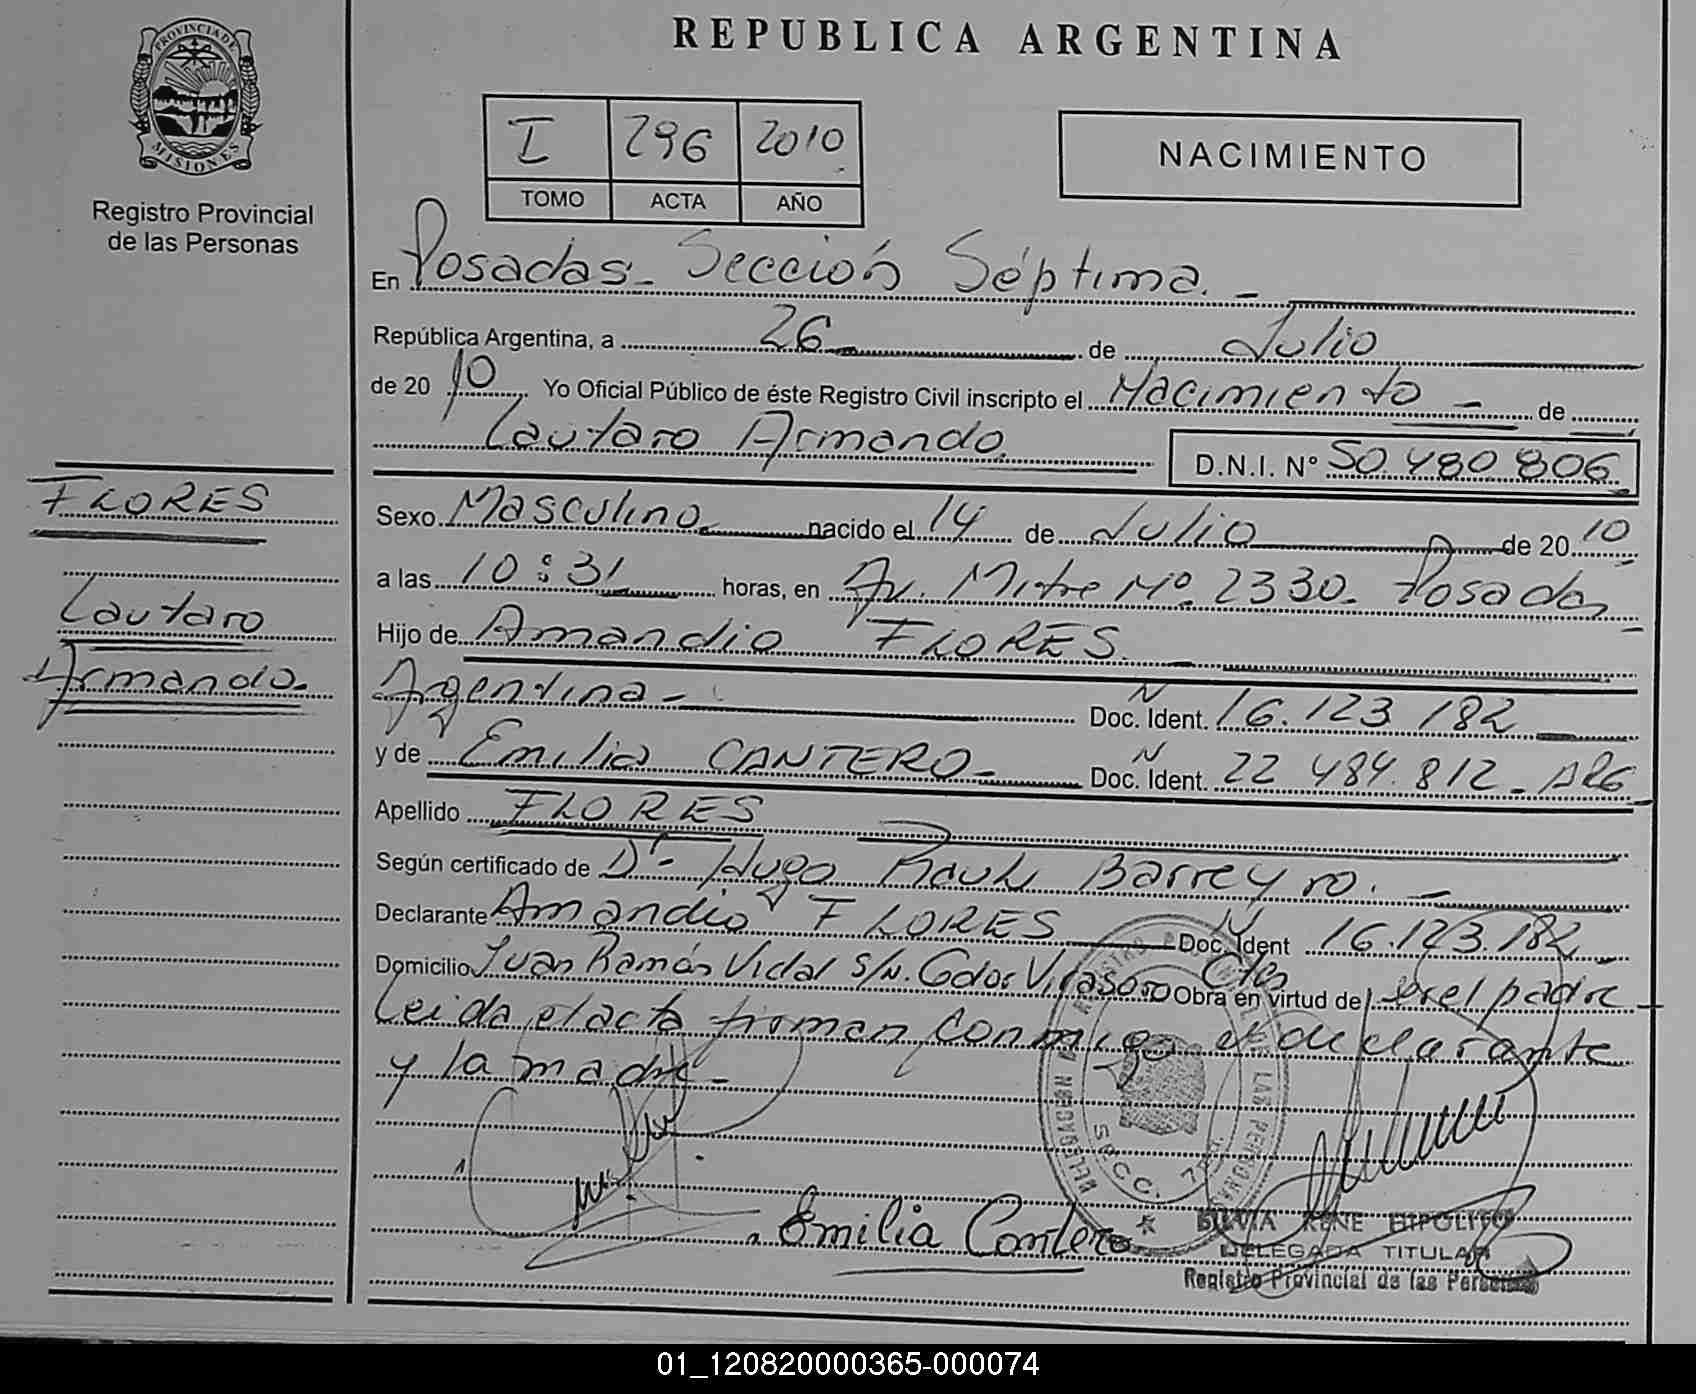 REPUBLICA ARGENTINA
PROVINCIA DE
MISIONES
Registro Provincial
de las Personas
I 296 2010
TOMO ACTA AÑO
NACIMIENTO
En Posadas - Sección Séptima. -
República Argentina, a 26 de Julio
de 20 10 Yo Oficial Público de éste Registro Civil inscripto el Nacimiento - de
Lautaro Armando. D.N.I. Nº 50.480.806
FLORES
Lautaro
Armando.
Sexo Masculino nacido el 14 de Julio de 20 10
a las 10:31 horas, en Av. Mitre Nº 2330. Posadas
Hijo de Amandio FLORES. -
Argentina - Doc. Ident. N 16.123.182
y de Emilia CANTERO - Doc. Ident. N 22 484.812 - ARG
Apellido FLORES
Según certificado de Dr. Hugo Raul Barreyro. -
Declarante Amandio FLORES Doc. Ident N 16.123.182
Domicilio Juan Ramón Vidal s/n. Gdor Virasoro Ctes Obra en virtud de ser el padre
Leida el acta firman conmigo el declarante
y la madre -
SECC. 7
Emilia Cantero
SILVIA RENE HIPOLITO
DELEGADA TITULAR
Registro Provincial de las Personas
01_120820000365-000074